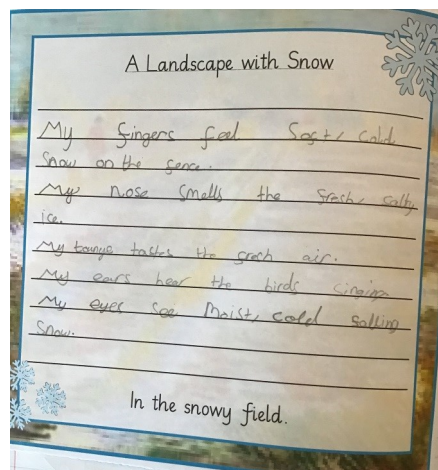 A Landscape with Snow
My fingers feel Soft, cold
Snow on the fence.
My nose smells the fresh, salty
ice.
My tounge tastes the fresh air.
My ears hear the birds singing
My eyes see Moist, cold falling
Snow.
In the snowy field.